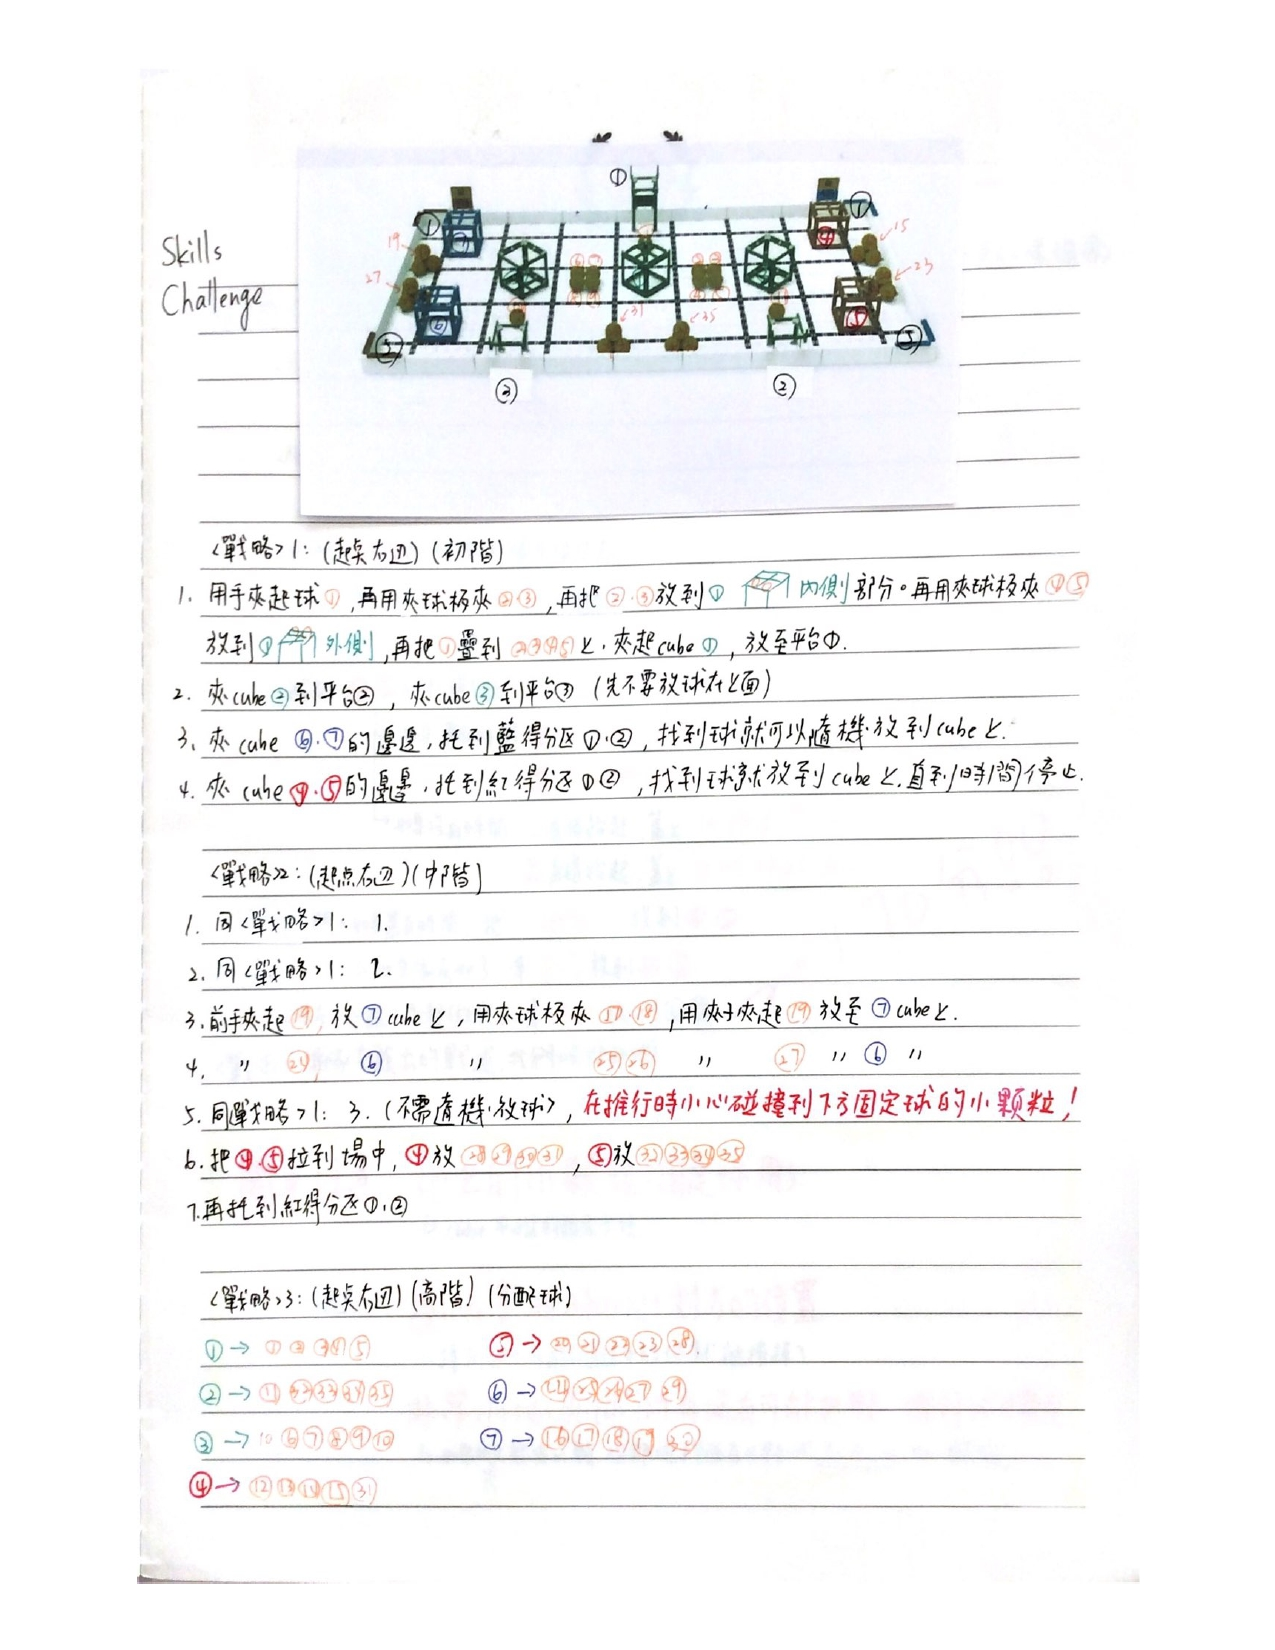 Skills
Challenge
① ① ① ② ③ ③ ②
19 27 15 23 31 35
④ ⑤ ⑥ ⑦
<戰略>1: (起點右边) (初階)
1. 用手夾起球①, 再用夾球板夾②③, 再把②·③放到① 內側部分。再用夾球板夾④⑤
放到① 外側, 再把①疊到②③④⑤上. 夾起cube①, 放至平台①.
2. 夾cube②到平台②, 夾cube③到平台③ (先不要放球在上面)
3. 夾cube ⑥.⑦的邊邊, 托到藍得分区①.②, 找到球就可以隨機放到cube上.
4. 夾cube④.⑤的邊邊, 托到紅得分区①②, 找到球就放到cube上. 直到時間停止.
<戰略>2: (起点右边) (中階)
1. 同<戰略>1: 1.
2. 同<戰略>1: 2.
3. 前手夾起⑲, 放⑦cube上, 用夾球板夾⑰.⑱, 用夾子夾起⑲放至⑦cube上.
4. " ㉔, ⑥ " ㉕㉖ " ㉗ " ⑥ "
5. 同戰略>1: 3. (不需隨機放球), 在推行時小心碰撞到下方固定球的小顆粒!
6. 把④.⑤拉到場中, ④放㉘㉙㉚㉛, ⑤放㉜㉝㉞㉟
7. 再托到紅得分区①.②
<戰略>3: (起点右边) (高階) (分配球)
①→ ①②③④⑤ ⑤→ ⑳㉑㉒㉓㉘
②→ ⑪㉜㉝㉞㉟ ⑥→ ㉔㉕㉖㉗㉙
③→ 10 ⑥⑦⑧⑨⑩ ⑦→ ⑯⑰⑱⑲㉚
④→ ⑫⑬⑭⑮㉛